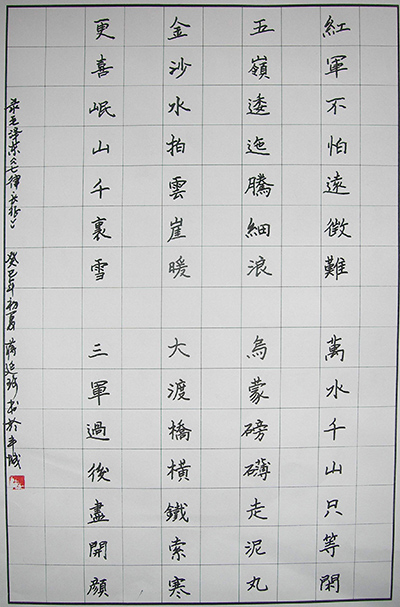 紅軍不怕遠徵難 萬水千山只等閑
五嶺逶迤騰細浪 烏蒙磅礴走泥丸
金沙水拍雲崖暖 大渡橋橫鐵索寒
更喜岷山千裏雪 三軍過後盡開顔
录毛泽东《七律·长征》 癸巳年初夏 书於丰城